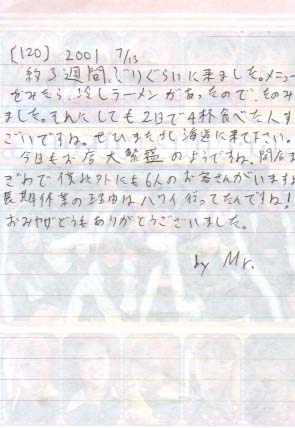 [120] 2001 7/13
約3週間ぶりぐらいに来ました。メニュー
をみたら、冷しラーメンがあったので、たのみ
ました。それにしても2日で4杯食べた人す
ごいですね。ぜひまた北海道に来て下さい。
今日もお店大繁盛のようですね。閉店ま
ぎわで僕以外にも6人のお客さんがいますよ
長期休業の理由はハワイ行ってたんですね!
おみやげどうもありがとうございました。
by Mr.